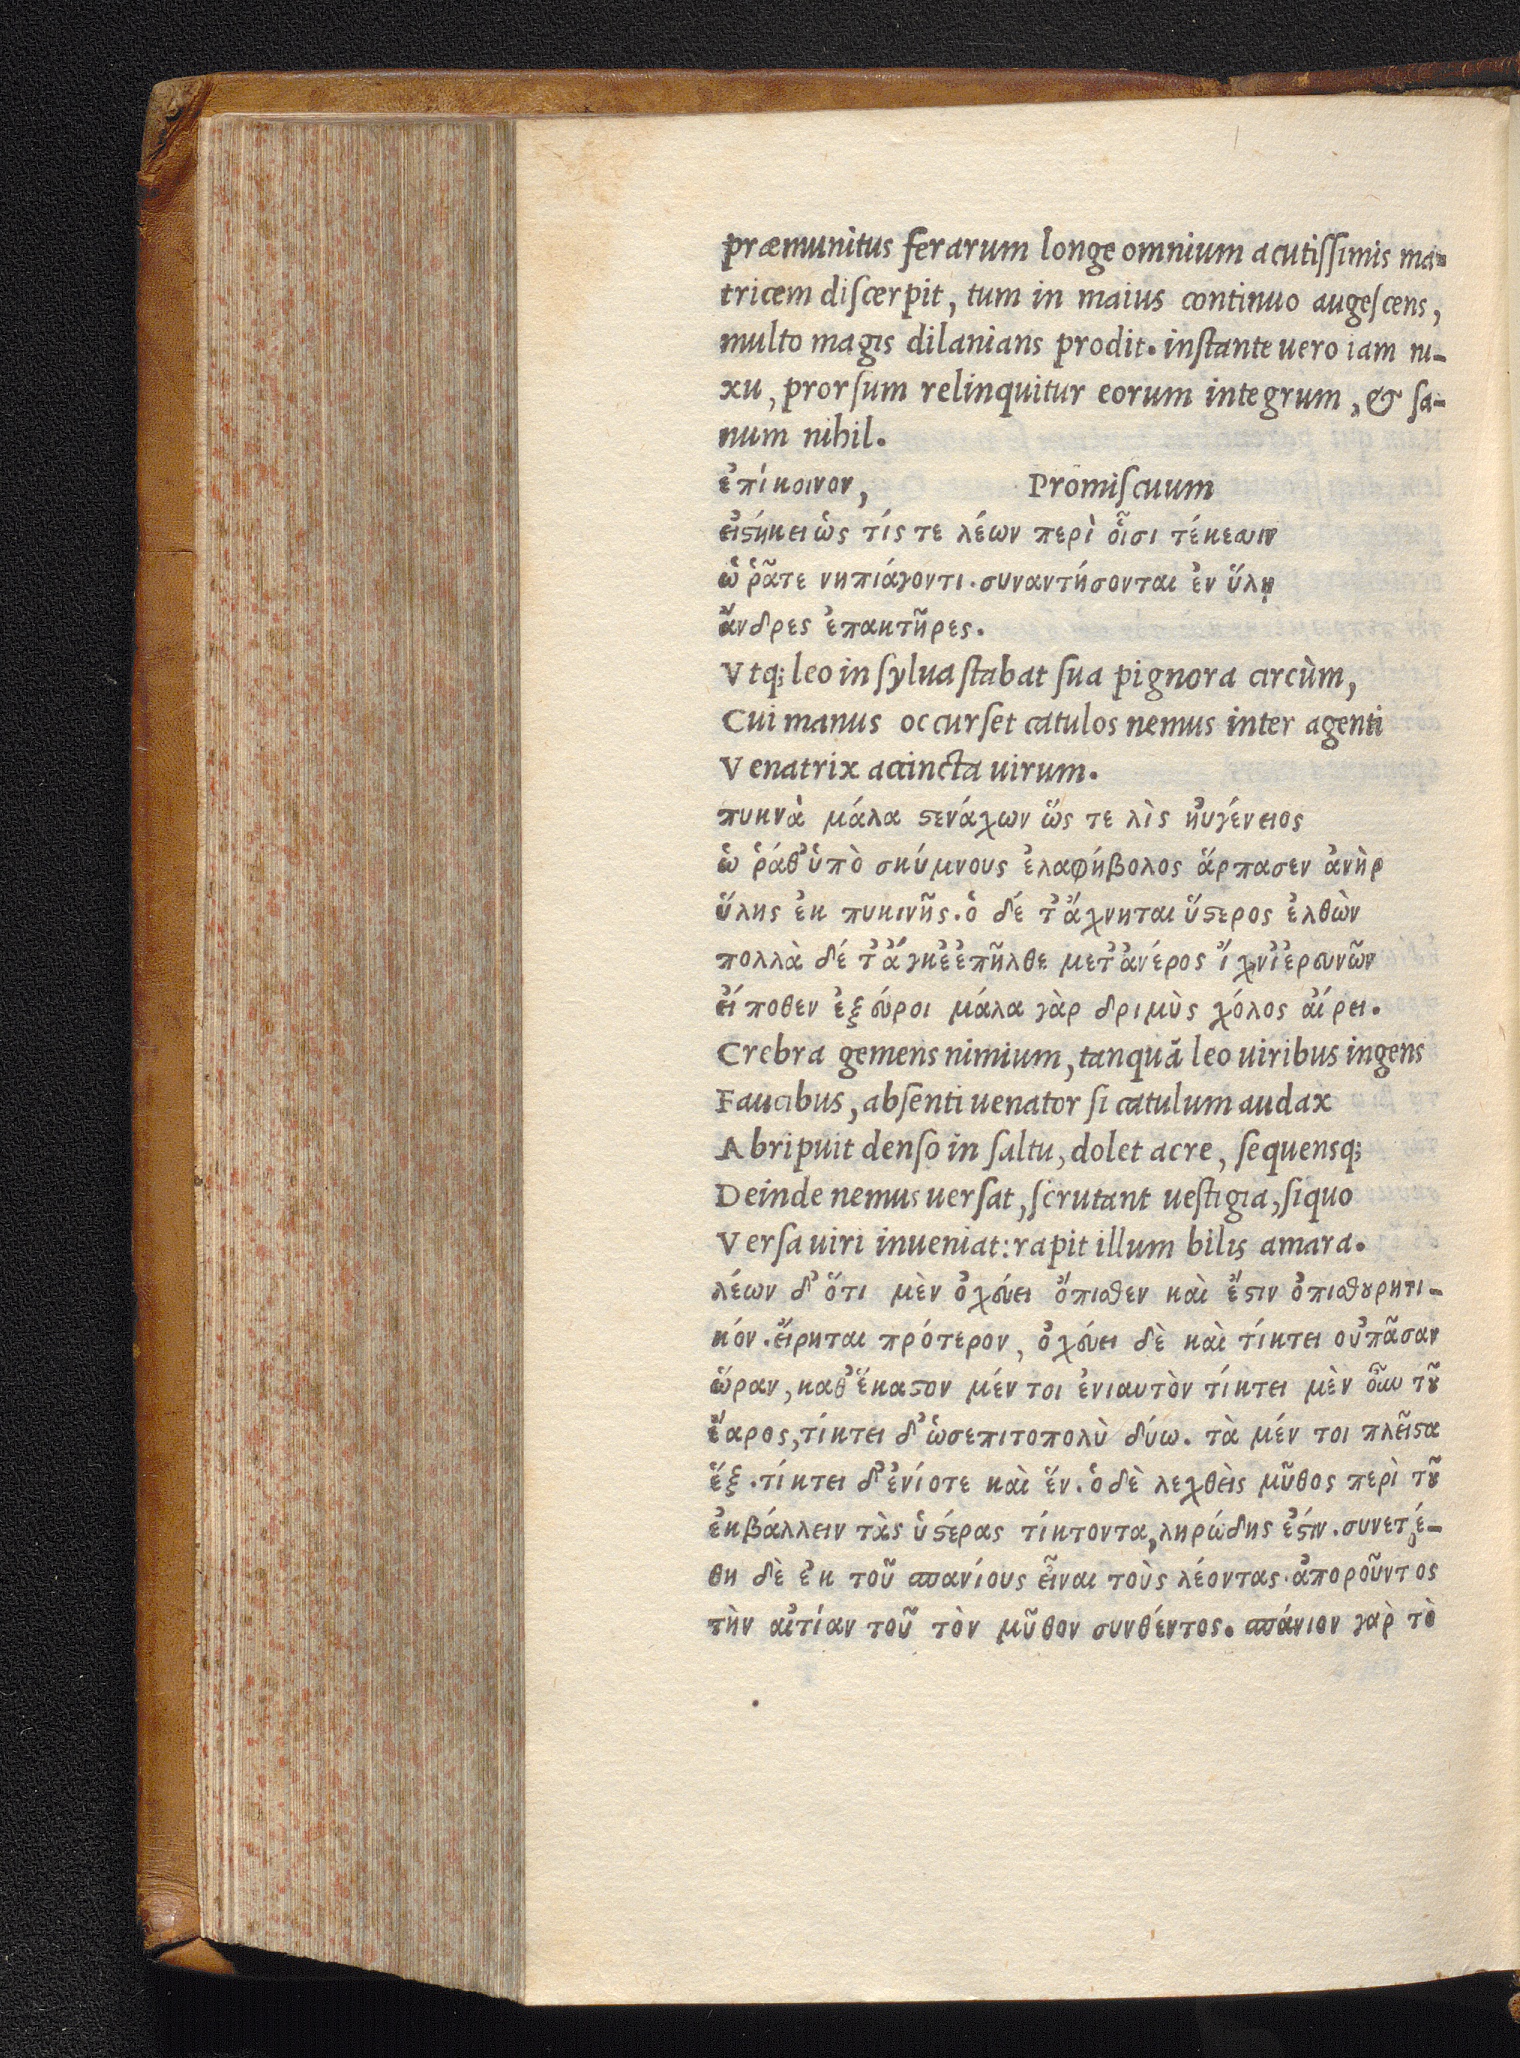 præmunitus ferarum longe omnium acutiſſimis ma-
tricem diſcerpit, tum in maius continuo augeſcens,
multo magis dilanians prodit. inſtante uero iam ni-
xu, prorſum relinquitur eorum integrum, & ſa-
num nihil.
ἐπίκοινον, Promiſcuum
εἱϛήκει ὥς τίς τε λέων περὶ οἷσι τέκεσσιν
ᾧ ῥᾶτε νηπιάγοντι. συναντήσονται ἐν ὕλη
ἄνδρες ἐπακτῆρες.
Vtq; leo in ſylua ſtabat ſua pignora circùm,
Cui manus occurſet catulos nemus inter agenti
Venatrix accincta uirum.
πυκνὰ μάλα ϛενάχων ὥς τε λὶς ἠυγένειος
ὧ ῥάθ᾽ ὑπὸ σκύμνους ἐλαφήβολος ἅρπασεν ἀνὴρ
ὕλης ἐκ πυκινῆς. ὁ δέ τ᾽ ἄχνηται ὕϛερος ἐλθὼν
πολλὰ δέ τ᾽ ἄγκε᾽ ἐπῆλθε μετ᾽ ἀνέρος ἴχνι᾽ ἐρευνῶν
εἴ ποθεν ἐξεύροι μάλα γὰρ δριμὺς χόλος αἱρει.
Crebra gemens nimium, tanquā leo uiribus ingens
Faucibus, abſenti uenator ſi catulum audax
Abripuit denſo in ſaltu, dolet acre, ſequensq;
Deinde nemus uerſat, ſcrutant ueſtigia, ſiquo
Verſa uiri inueniat: rapit illum bilis amara.
λέων δ᾽ ὅτι μὲν ὀχεύει ὄπισθεν καὶ ἔϛιν ὀπισθουρητι-
κόν. εἴρηται πρότερον, ὀχεύει δὲ καὶ τίκτει οὐπᾶσαν
ὥραν, καθ᾽ ἕκαϛον μέν τοι ἐνιαυτὸν τίκτει μὲν οὖν τοῦ
ἔαρος, τίκτει δ᾽ ὡσεπιτοπολὺ δύω. τὰ μέν τοι πλεῖϛα
ἕξ. τίκτει δ᾽ ἐνίοτε καὶ ἕν. ὁ δὲ λεχθεὶς μῦθος περὶ τοῦ
ἐκβάλλειν τὰς ὑϛέρας τίκτοντα, ληρώδης ἐϛίν. συνετέ-
θη δὲ ἐκ τοῦ σπανίους εἶναι τοὺς λέοντας. ἀποροῦντος
τὴν αἰτίαν τοῦ τὸν μῦθον συνθέντος. σπάνιον γαρ̀ τὸ